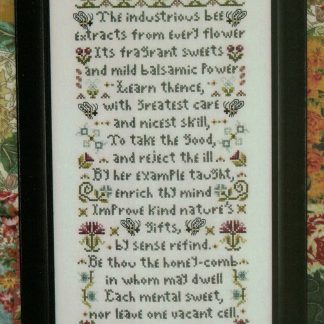 The industrious bee
extracts from every flower
Its fragrant sweets
and mild balsamic power
Learn thence,
with greatest care
and nicest skill,
To take the good,
and reject the ill
By her example taught,
enrich thy mind
Improve kind nature's
gifts,
by sense refind.
Be thou the honey-comb
in whom may dwell
Each mental sweet,
nor leave one vacant cell.